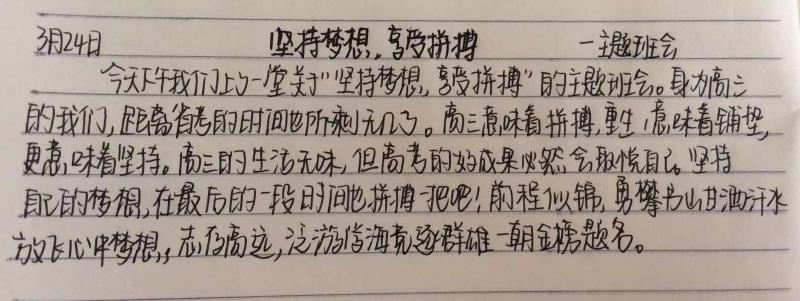 3月24日 坚持梦想,享受拼搏 —主题班会
今天下午我们上了一堂关于"坚持梦想,享受拼搏"的主题班会。身为高三
的我们,距离省考的时间也所剩无几了。高三意味着拼搏,重生,意味着铺垫,
更意味着坚持。高三的生活无味,但高考的好成果必然会取悦自己。坚持
自己的梦想,在最后的一段时间也拼搏一把吧!前程似锦,勇攀书山甘洒汗水
放飞心中梦想,志存高远,泛游学海竞逐群雄一朝金榜题名。